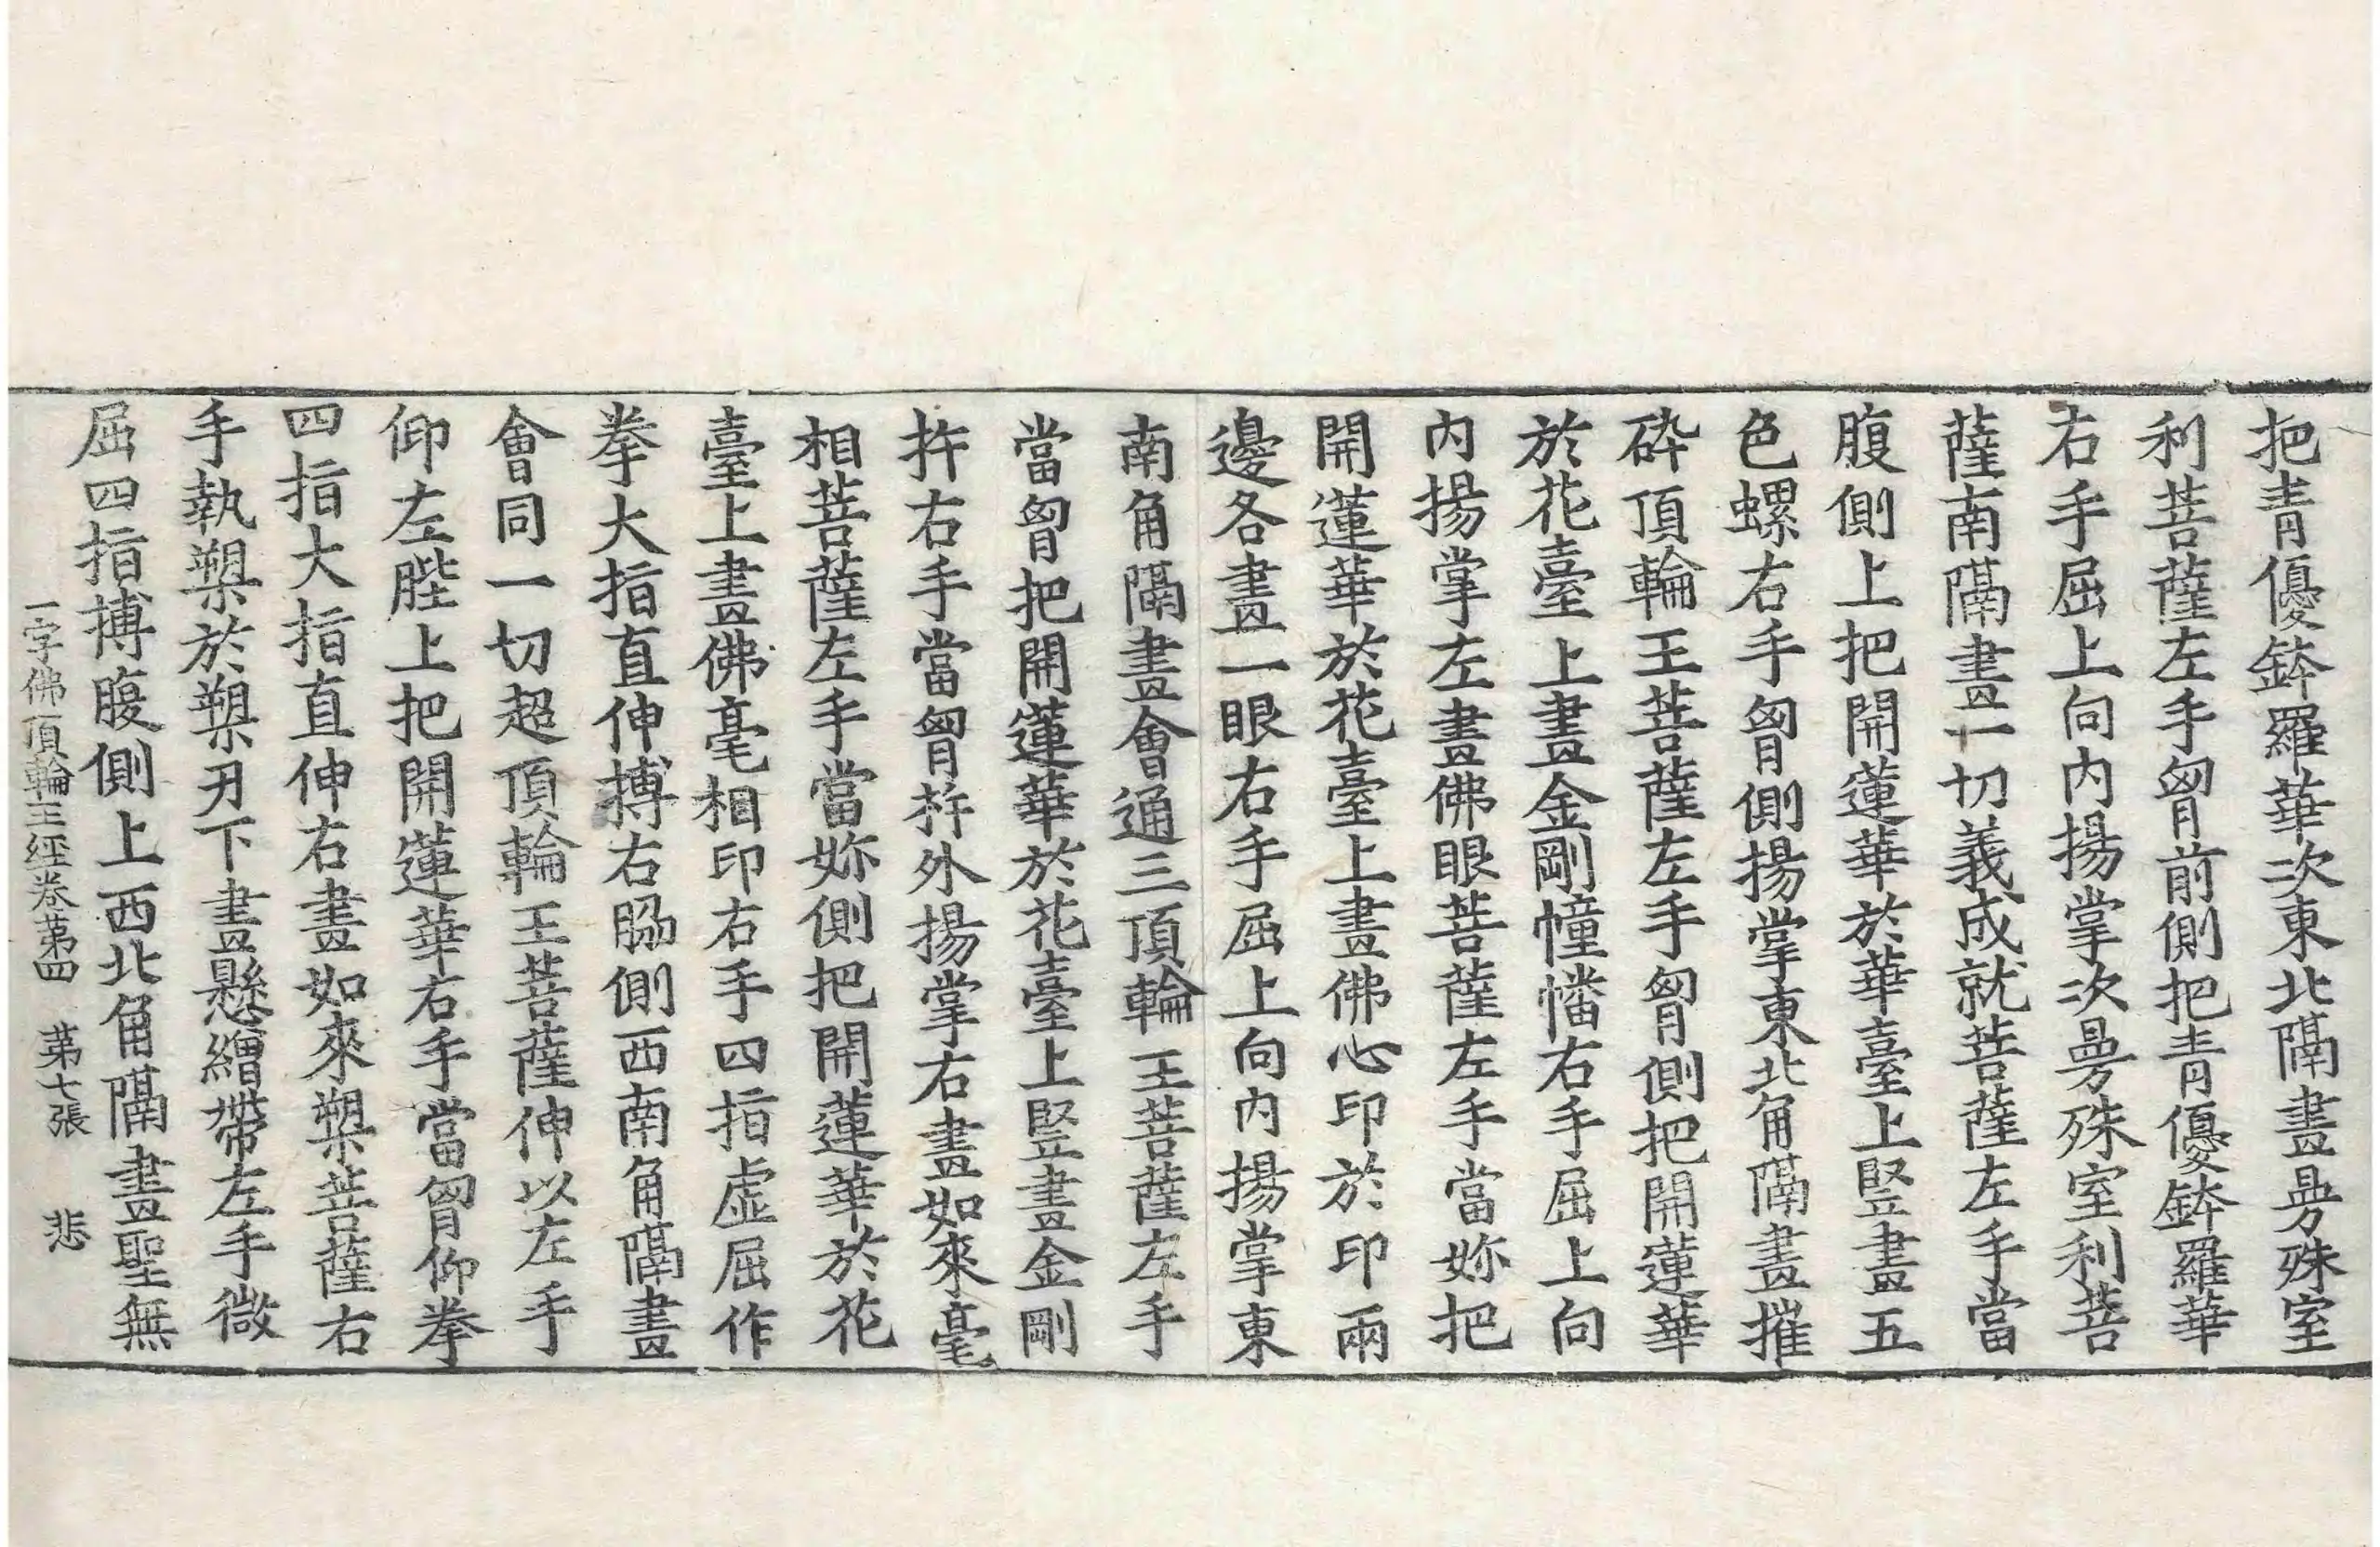 把青優鉢羅華次東北隔畫曼殊室
利菩薩左手胷前側把青優鉢羅華
右手屈上向内揚掌次曼殊室利菩
薩南隔畫一切義成就菩薩左手當
腹側上把開蓮華於華臺上竪畫五
色螺右手胷側揚掌東北角隔畫摧
砕頂輪王菩薩左手胷側把開蓮華
於花臺上畫金剛幢幡右手屈上向
内揚掌左畫佛眼菩薩左手當妳把
開蓮華於花臺上畫佛心印於印兩
邊各畫一眼右手屈上向内揚掌東
南角隔畫會通三頂輪王菩薩左手
當胷把開蓮華於花臺上竪畫金剛
杵右手當胷杵外揚掌右畫如來毫
相菩薩左手當妳側把開蓮華於花
臺上畫佛毫相印右手四指虛屈作
拳大指直伸搏右脇側西南角隔畫
會同一切超頂輪王菩薩伸以左手
仰左䏶上把開蓮華右手當胷仰拳
四指大指直伸右畫如來槊菩薩右
手執槊於槊刃下畫懸繒帶左手微
屈四指搏腹側上西北角隔畫聖無
一字佛頂輪王經卷苐四　苐七張　悲